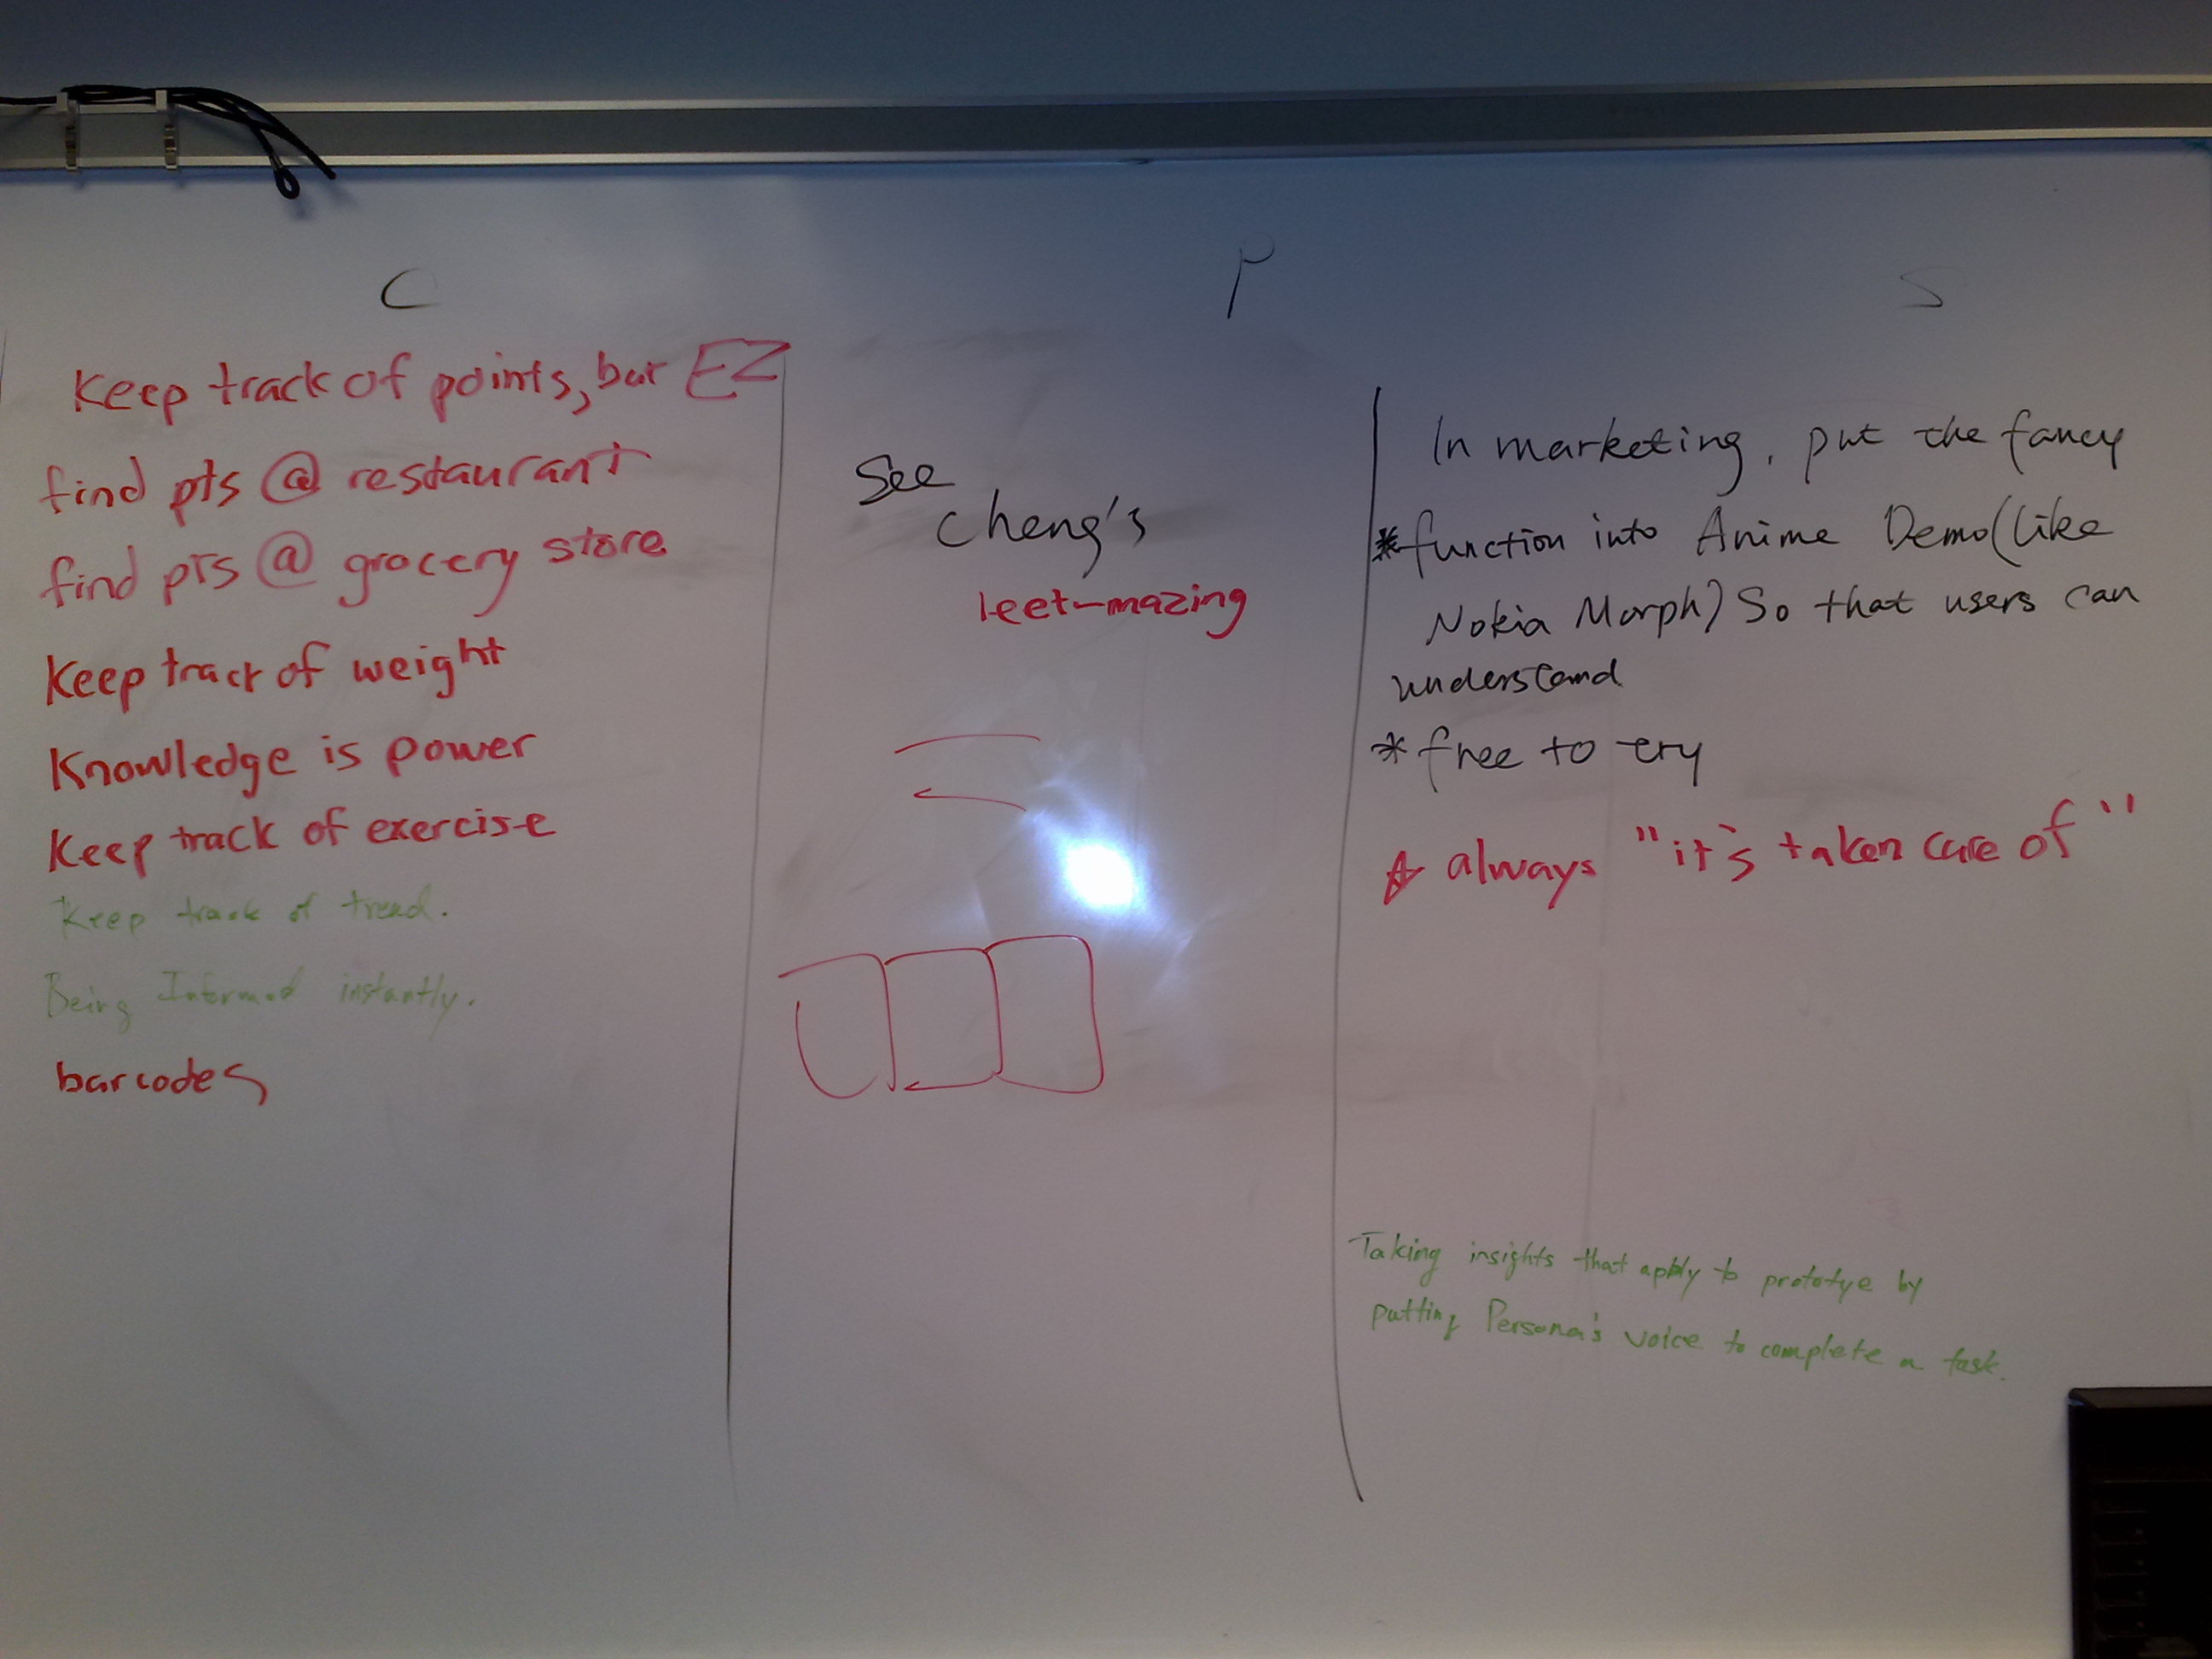 C
P
S
Keep track of points, but EZ
find pts @ restaurant
find pts @ grocery store
Keep track of weight
Knowledge is power
Keep track of exercise
Keep track of trend.
Being Informed instantly.
barcodes
See
Cheng's
leet-mazing
In marketing, put the fancy
* function into Anime Demo (like
Nokia Morph) So that users can
understand
* free to try
☆ always "it's taken care of"
Taking insights that apply to prototye by
putting Persona's voice to complete a task.